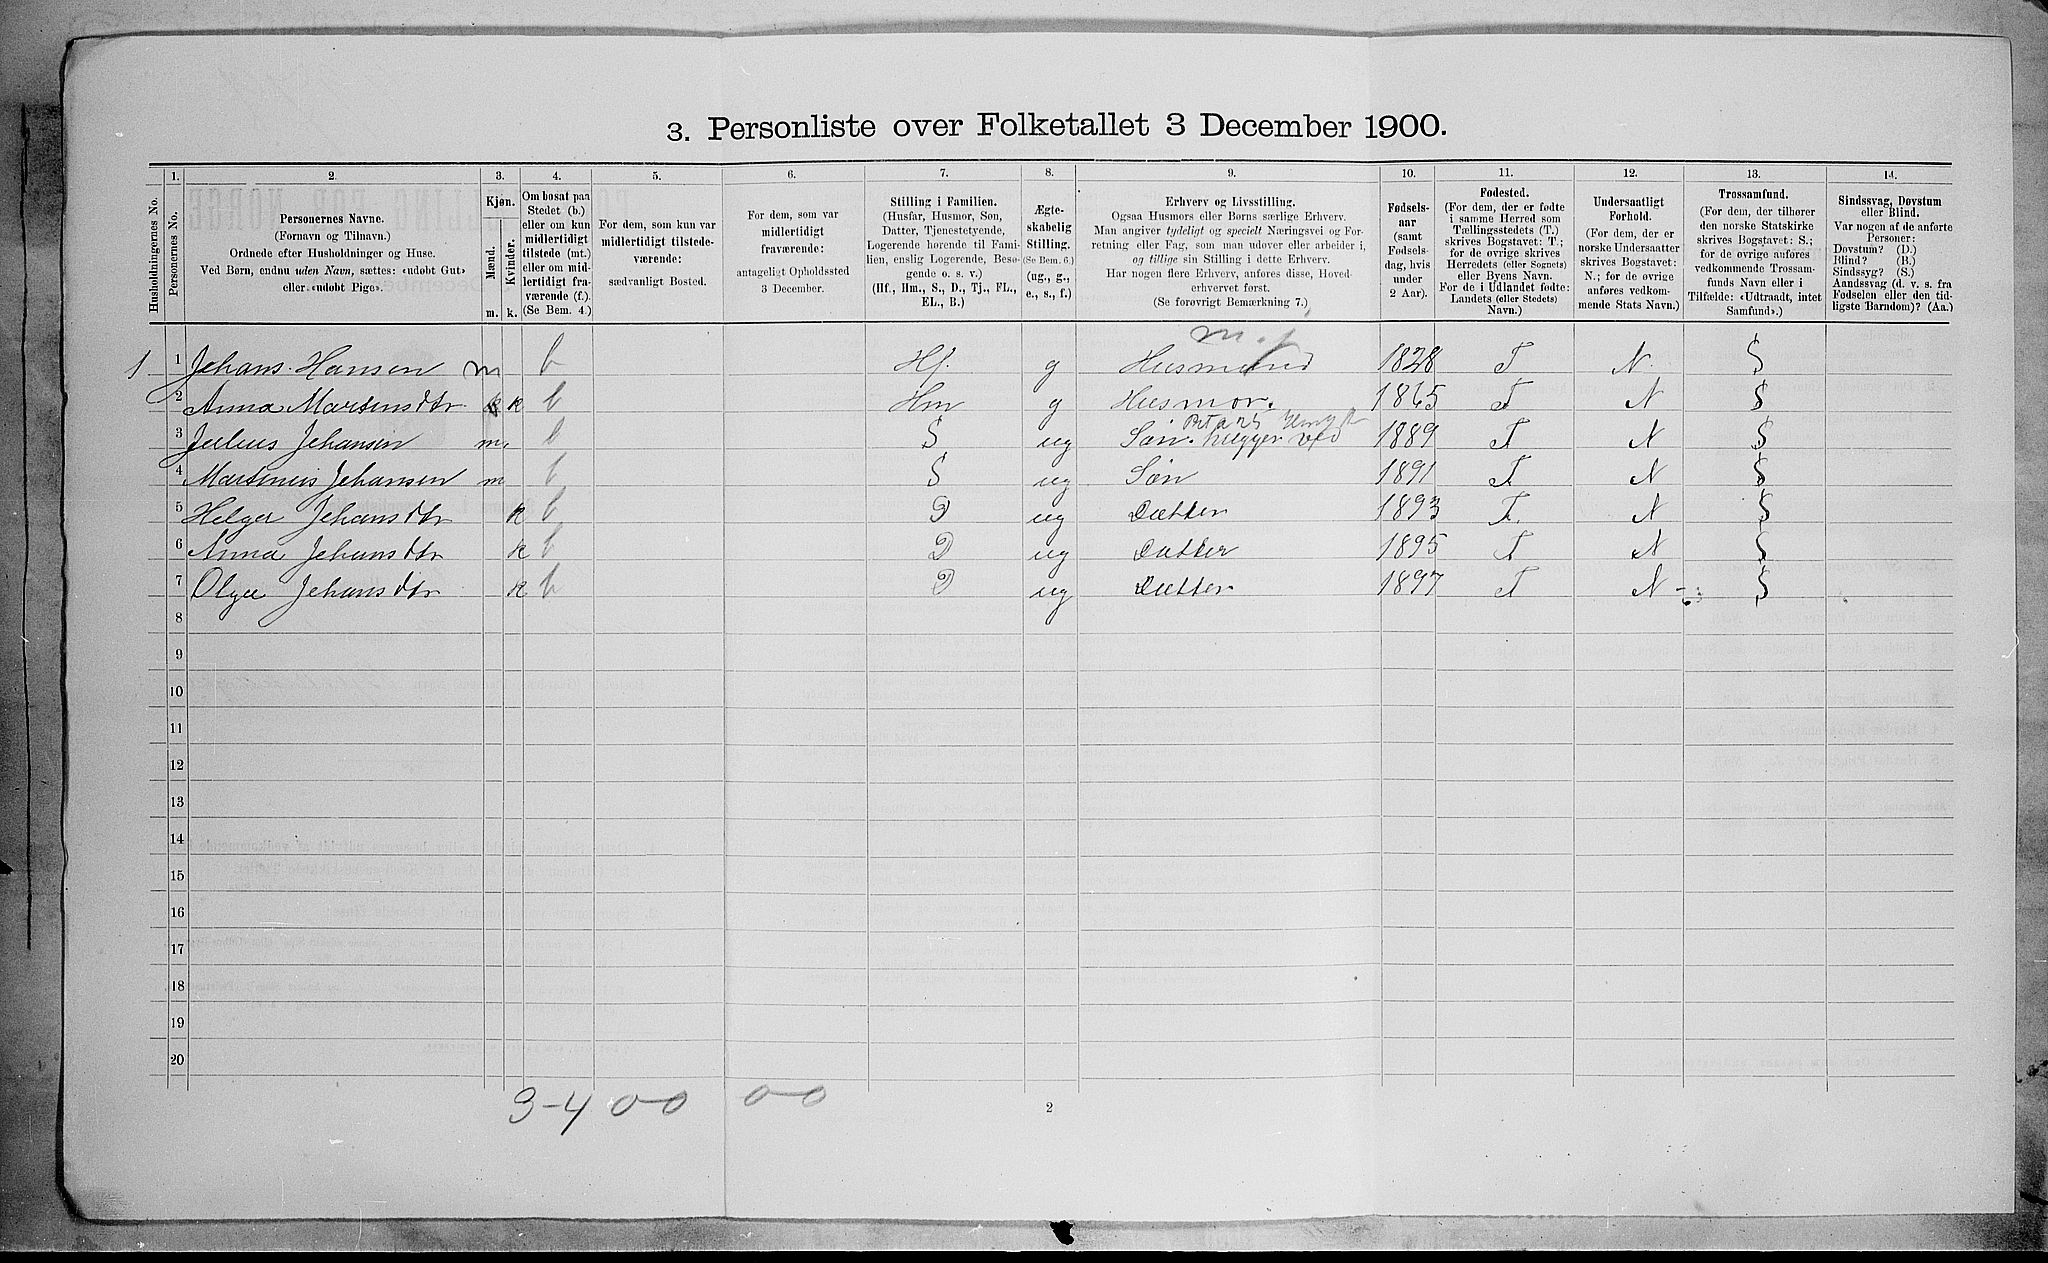 3. Personliste over Folketallet 3 December 1900.
1. 2. 3. 4. 5. 6. 7. 8. 9. 10. 11. 12. 13. 14.
Husholdningernes No.
Personernes No.
Personernes Navne.
(Fornavn og Tilnavn.)
Ordnede efter Husholdninger og Huse.
Ved Børn, endnu uden Navn, sættes: «udøbt Gut»
eller «udøbt Pige».
Kjøn.
Mænd.
Kvinder.
m. k.
Om bosat paa
Stedet (b.)
eller om kun
midlertidigt
tilstede (mt.)
eller om mid-
lertidigt fra-
værende (f.)
(Se Bem. 4.)
For dem, som kun var
midlertidigt tilstede-
værende:
sædvanligt Bosted.
For dem, som var
midlertidigt
fraværende:
antageligt Opholdssted
3 December.
Stilling i Familien.
(Husfar, Husmor, Søn,
Datter, Tjenestetyende,
Logerende hørende til Fami-
lien, enslig Logerende, Besø-
gende o. s. v.)
(Hf., Hm., S., D., Tj., FL.,
EL., B.)
Ægte-
skabelig
Stilling.
(Se Bem. 6.)
(ug., g.,
e., s., f.)
Erhverv og Livsstilling.
Ogsaa Husmors eller Børns særlige Erhverv.
Man angiver tydeligt og specielt Næringsvei og For-
retning eller Fag, som man udøver eller arbeider i,
og tillige sin Stilling i dette Erhverv.
Har nogen flere Erhverv, anføres disse, Hoved-
erhvervet først.
(Se forøvrigt Bemærkning 7.)
Fødsels-
aar
(samt
Fødsels-
dag, hvis
under
2 Aar).
Fødested.
(For dem, der er fødte
i samme Herred som
Tællingsstedets (T.)
skrives Bogstavet: T.;
for de øvrige skrives
Herredets (eller Sognets)
eller Byens Navn.
For de i Udlandet fødte:
Landets (eller Stedets)
Navn.)
Undersaatligt
Forhold.
(For dem, der er
norske Undersaatter
skrives Bogstavet:
N.; for de øvrige
anføres vedkom-
mende Stats Navn.)
Trossamfund.
(For dem, der tilhører
den norske Statskirke
skrives Bogstavet: S.;
for de øvrige anføres
vedkommende Trossam-
funds Navn eller i
Tilfælde: «Udtraadt, intet
Samfund».)
Sindssvag, Døvstum
eller Blind.
Var nogen af de anførte
Personer:
Døvstum? (D.)
Blind? (B.)
Sindssyg? (S.)
Aandssvag (d. v. s. fra
Fødselen eller den tid-
ligste Barndom)? (Aa.)
1 1 Johans Hansen m b Hf. g Husmand 1828 T N. S
2 Anna Martinsdtr k b Hm g Husmor. 1865 T N S
3 Julius Johansen m. b S ug Søn. hugger ved 1889 T N S
4 Martinus Johansen m b S ug Søn 1891 T N S
5 Helga Johansdtr k b D ug Datter 1893 T. N S
6 Anna Johansdtr k b D ug Datter 1895 T N S
7 Olga Johansdtr k b D ug Datter 1897 T N S
8
9
10
11
12
13
14
15
16
17
18
19
20
3-4 0-0 0-0
2